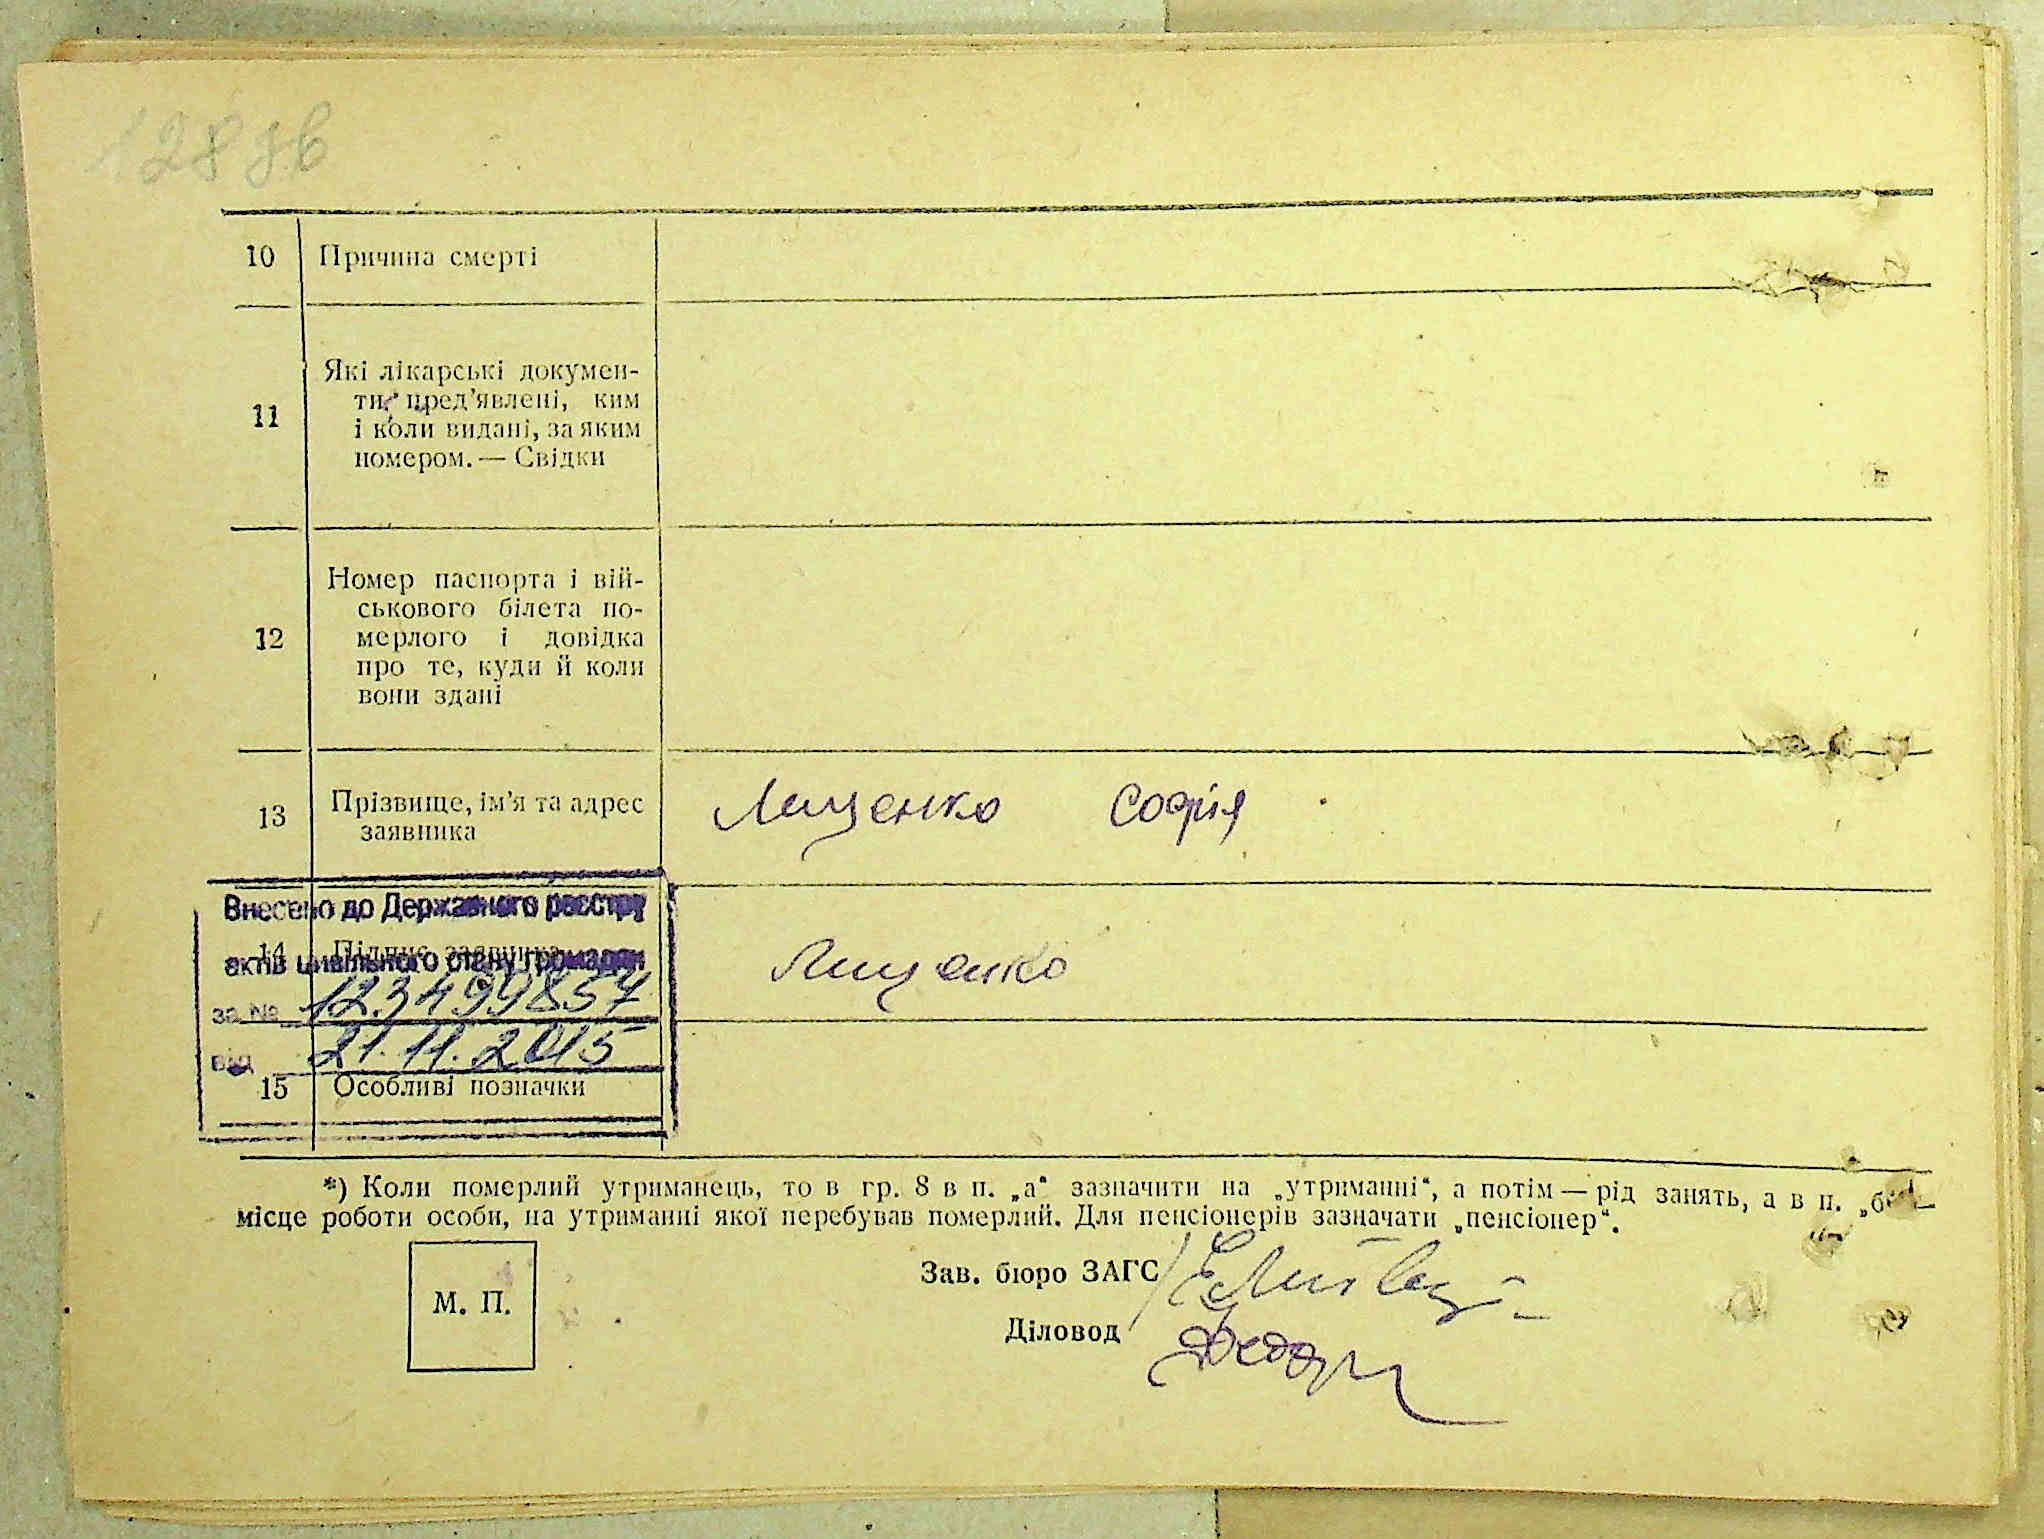 128 зв
10 Причина смерті
11 Які лікарські докумен-
ти пред'явлені, ким
і коли видані, за яким
номером. — Свідки
12 Номер паспорта і вій-
ськового білета по-
мерлого і довідка
про те, куди й коли
вони здані
13 Прізвище, ім'я та адрес
заявника
Лищенко Софія
Внесено до Державного реєстру
14 Підпис заявника
актів цивільного стану громадян
Лищенко
за № 12399857
від 21.11.2015
15 Особливі позначки
*) Коли померлий утриманець, то в гр. 8 в п. „а“ зазначити на „утриманні“, а потім — рід занять, а в п. „б“ —
місце роботи особи, на утриманні якої перебував померлий. Для пенсіонерів зазначати „пенсіонер“.
Зав. бюро ЗАГС
М. П.
Діловод